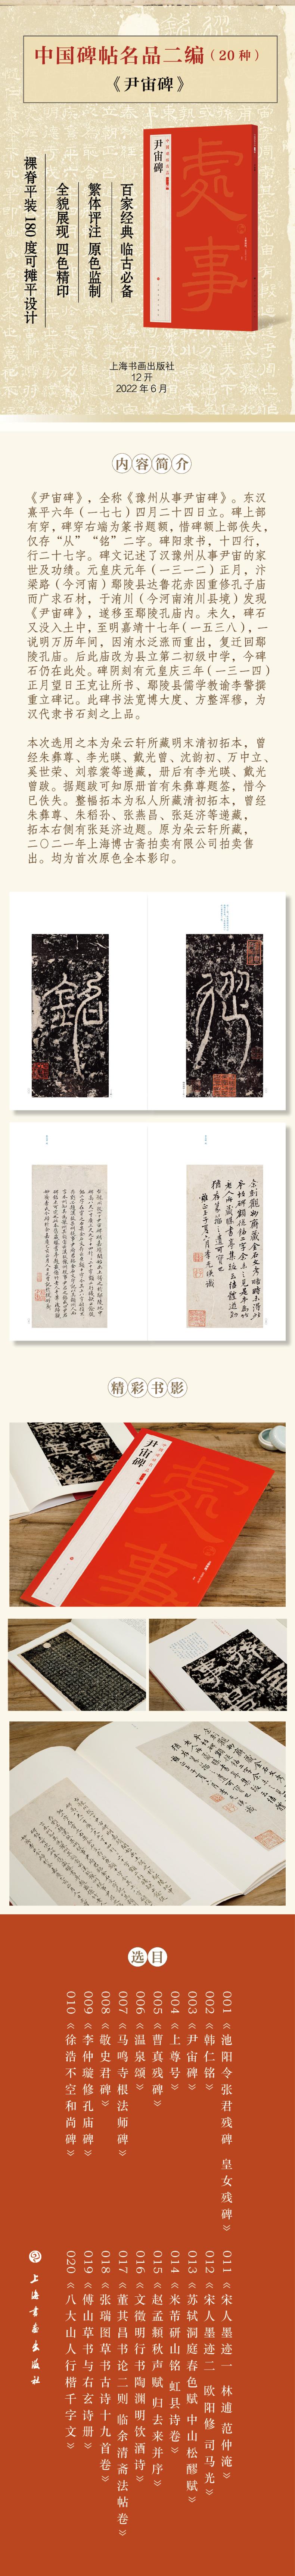 中国碑帖名品二编（20 种）
《尹宙碑》
百家经典 临古必备
繁体评注 原色监制
全貌展现 四色精印
裸脊平装 180 度可摊平设计
尹宙碑
上海书画出版社
12 开
2022 年 6 月
内容简介
《尹宙碑》，全称《豫州从事尹宙碑》。东汉
熹平六年（一七七）四月二十四日立。碑上部
有穿，碑穿右端为篆书题额，惜碑额上部佚失，
仅存“从”“铭”二字。碑阳隶书，十四行，
行二十七字。碑文记述了汉豫州从事尹宙的家
世及功绩。元皇庆元年（一三一二）正月，汴
梁路（今河南）鄢陵县达鲁花赤因重修孔子庙
而广求石材，于洧川（今河南洧川县境）发现
《尹宙碑》，遂移至鄢陵孔庙内。未久，碑石
又没入土中，至明嘉靖十七年（一五三八），一
说明万历年间，因洧水泛涨而重出，复迁回鄢
陵孔庙。后此庙改为县立第二初级中学，今碑
石仍在此处。碑阴刻有元皇庆三年（一三一四）
正月望日王克让所书、鄢陵县儒学教谕李警撰
重立碑记。此碑书法宽博大度、方整浑穆，为
汉代隶书石刻之上品。
本次选用之本为朵云轩所藏明末清初拓本，曾
经朱彝尊、李光暎、戴光曾、沈韵初、万中立、
奚世荣、刘蓉裳等递藏，册后有李光暎、戴光
曾跋。据题跋可知原册首有朱彝尊题签，惜今
已佚失。整幅拓本为私人所藏清初拓本，曾经
朱彝尊、朱稻孙、张燕昌、张廷济等递藏，
拓本右侧有张廷济边题。原为朵云轩所藏，
二〇二一年上海博古斋拍卖有限公司拍卖售
出。均为首次原色全本影印。
精彩书影
尹宙碑
选目
001《池阳令张君残碑 皇女残碑》
002《韩仁铭》
003《尹宙碑》
004《上尊号》
005《曹真残碑》
006《温泉颂》
007《马鸣寺根法师碑》
008《敬史君碑》
009《李仲璇修孔庙碑》
010《徐浩不空和尚碑》
011《宋人墨迹一 林逋 范仲淹》
012《宋人墨迹二 欧阳修 司马光》
013《苏轼洞庭春色赋 中山松醪赋》
014《米芾研山铭 虹县诗卷》
015《赵孟頫秋声赋 归去来并序》
016《文徵明行书陶渊明饮酒诗》
017《董其昌书论二则 临余清斋法帖卷》
018《张瑞图草书古诗十九首卷》
019《傅山草书与右玄诗册》
020《八大山人行楷千字文》
上海书画出版社